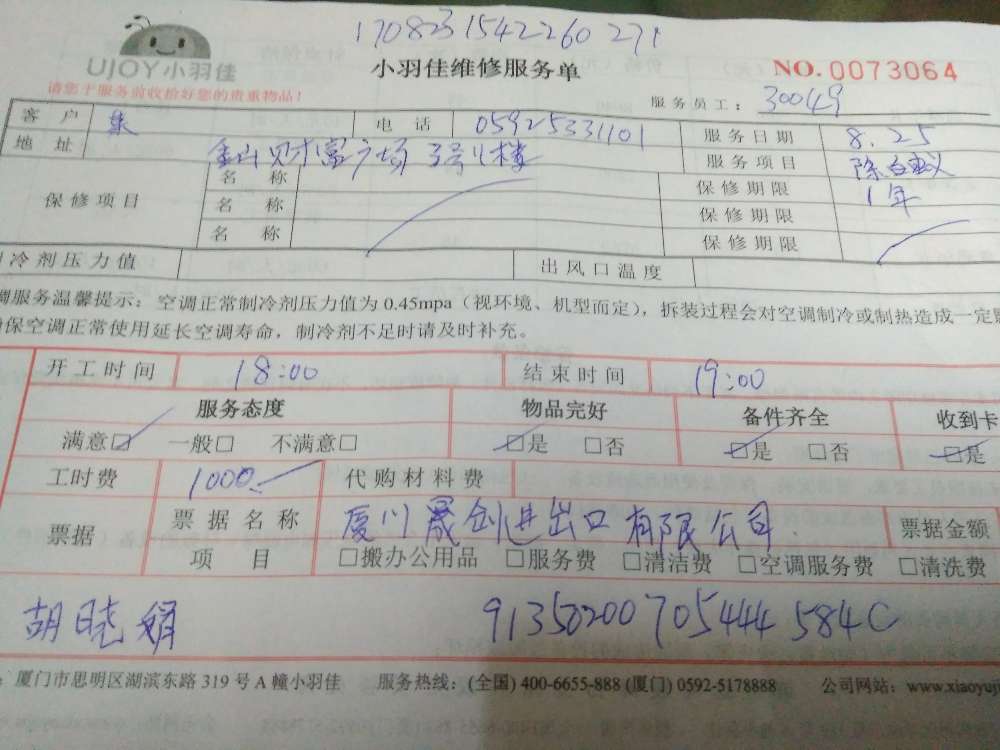 1708231542260271
UJOY小羽佳
小羽佳维修服务单
NO. 0073064
请您于服务前收拾好您的贵重物品!
服务员工: 30049
客户 集 电话 05925331101 服务日期 8.25
地址 金山财富广场3号11楼 服务项目 除白蚁
保修项目 名称 保修期限 1年
名称 保修期限
名称 保修期限
冷剂压力值 出风口温度
调服务温馨提示: 空调正常制冷剂压力值为 0.45mpa(视环境、机型而定), 拆装过程会对空调制冷或制热造成一定
保空调正常使用延长空调寿命, 制冷剂不足时请及时补充。
开工时间 18:00 结束时间 19:00
服务态度 物品完好 备件齐全 收到卡
满意☑ 一般□ 不满意□ ☑是 □否 ☑是 □否 ☑是
工时费 1000 代购材料费
票据 票据名称 厦门晟创进出口有限公司 票据金额
项目 □搬办公用品 □服务费 □清洁费 □空调服务费 □清洗费
胡晓娟 91350200705444584C
: 厦门市思明区湖滨东路 319 号 A 幢小羽佳 服务热线: (全国) 400-6655-888 (厦门) 0592-5178888 公司网站: www.xiaoyuj